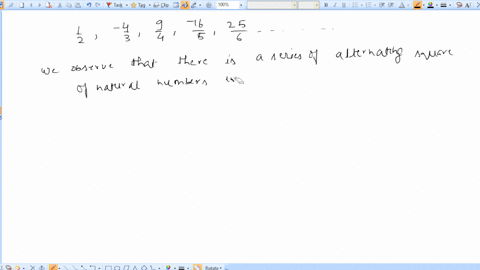 100%
Task Tag
1/2, -4/3, 9/4, -16/5, 25/6 - - - - - - - -
we observe that there is a series of alternating square
of natural numbers
Rotate